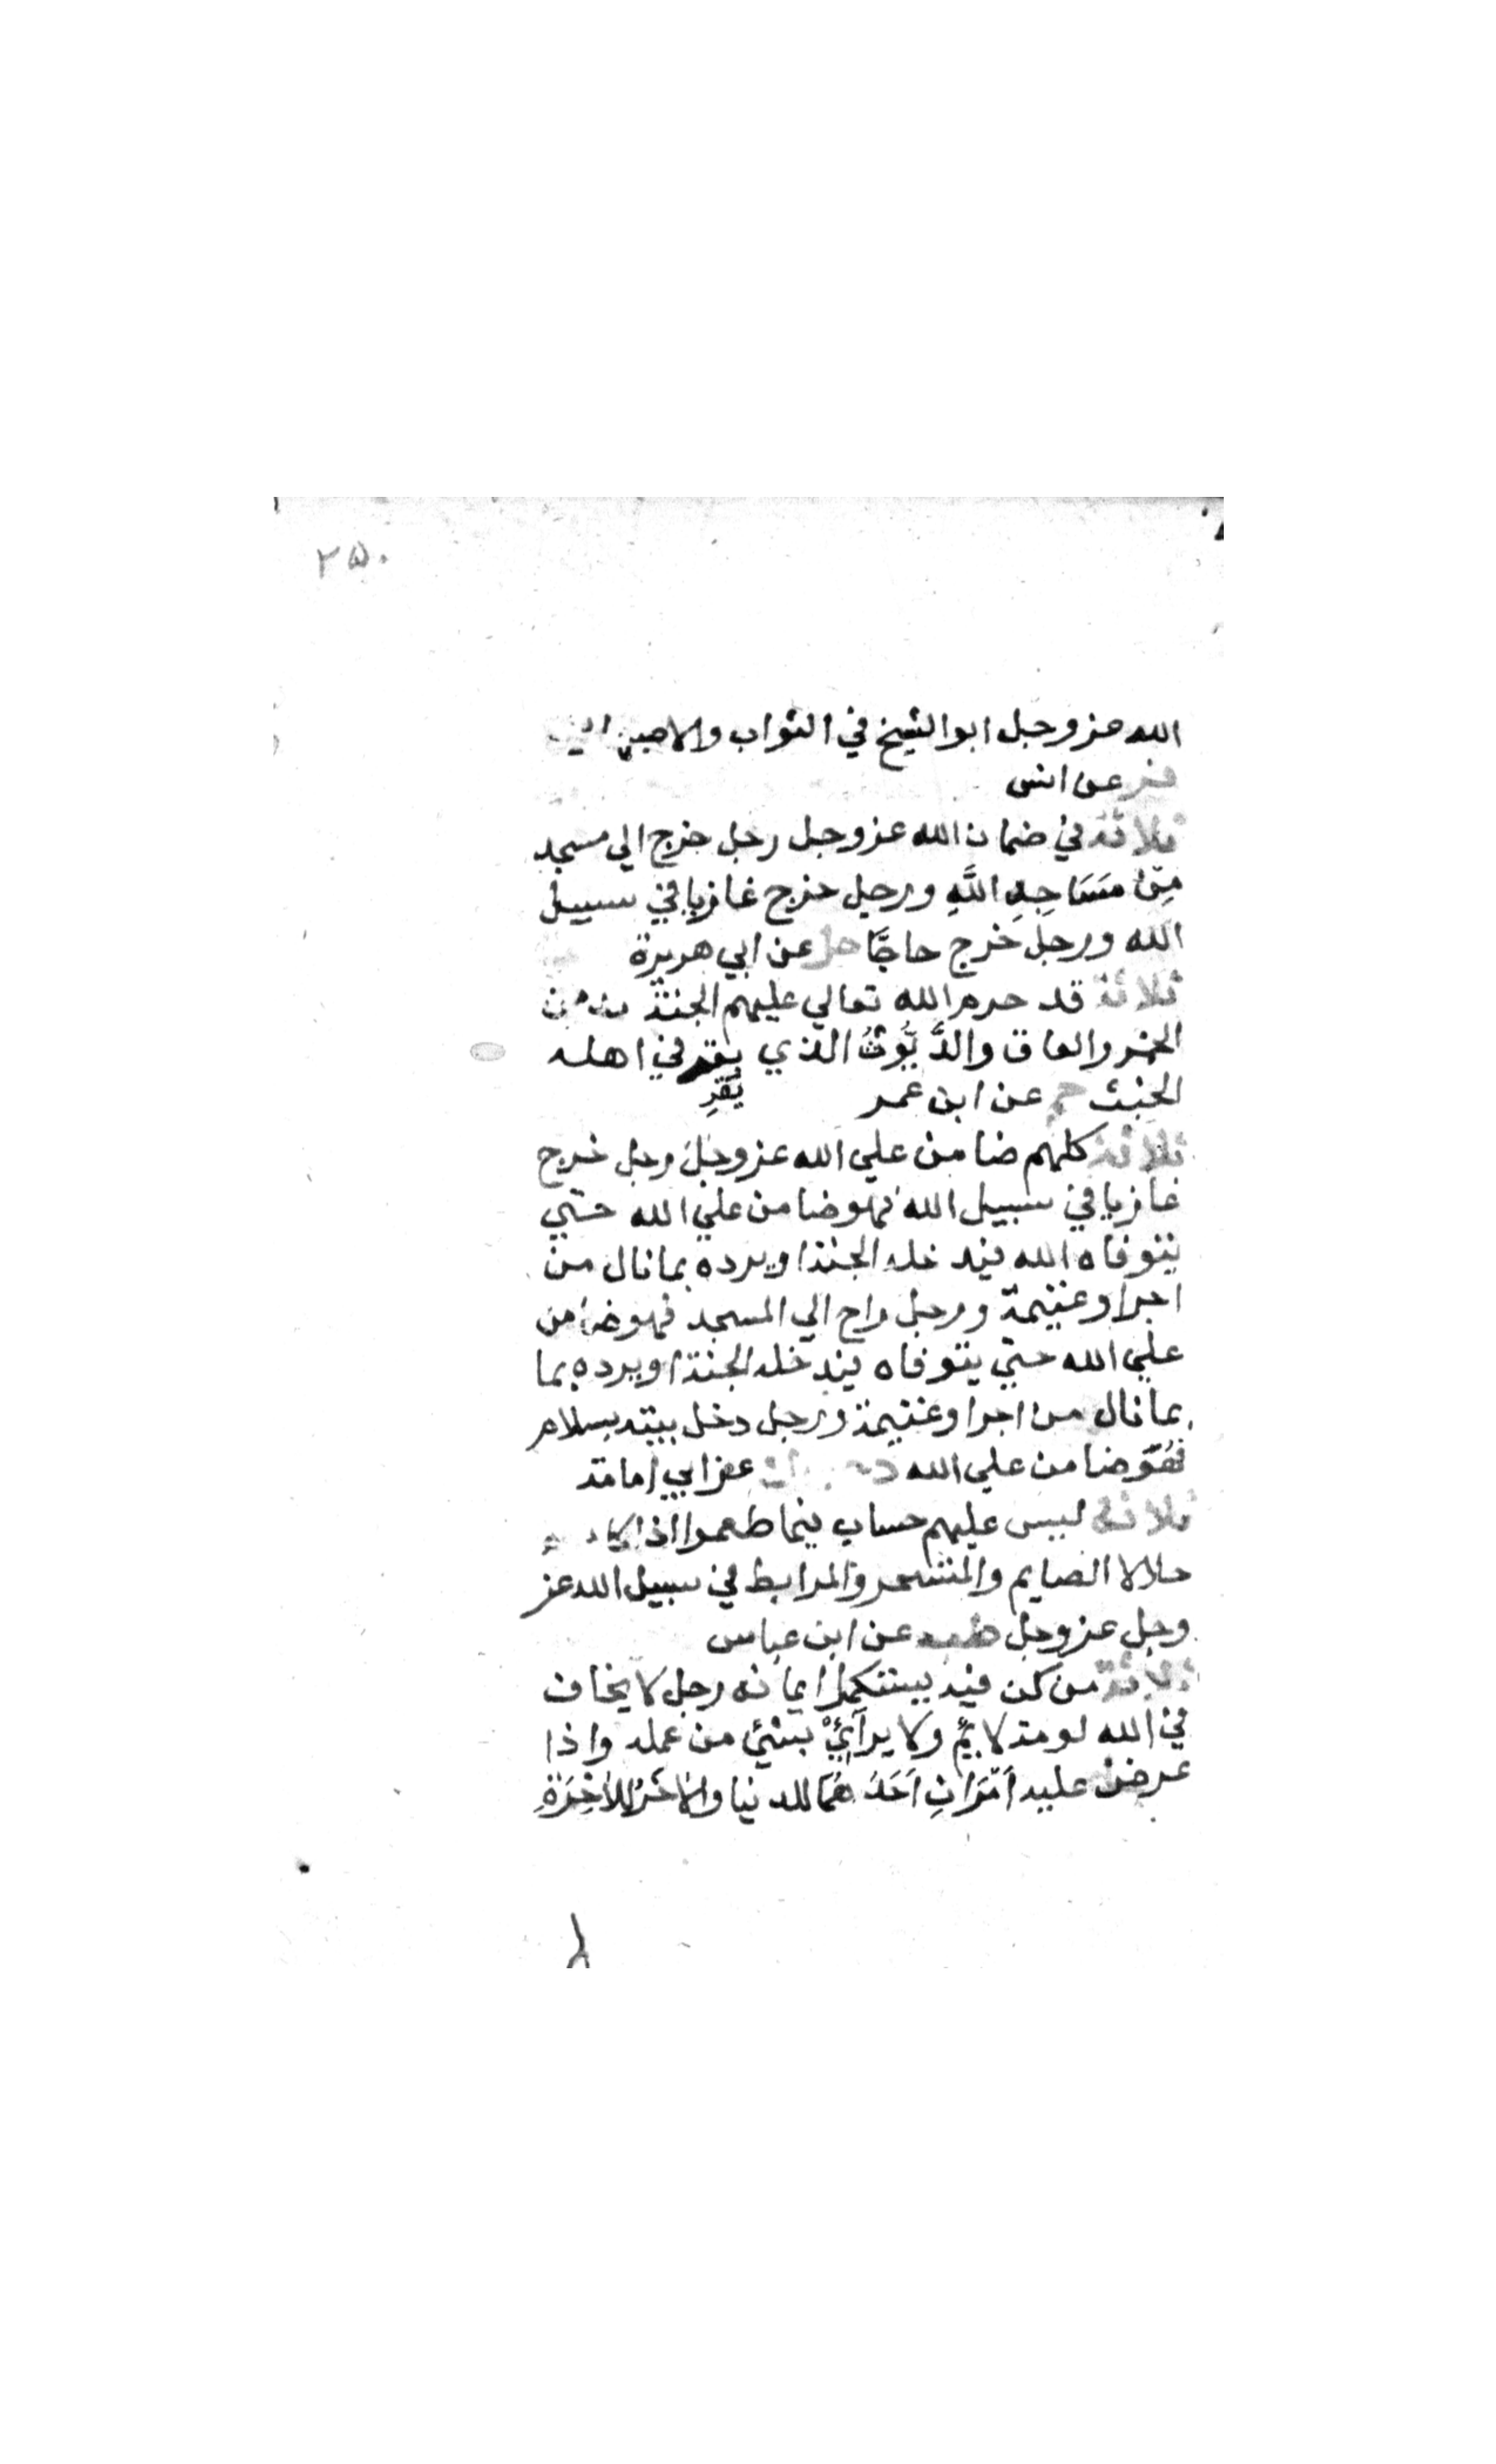 ٢٥٠
الله عز وجل ابو الشيخ في الثواب والاصبهاني
فر عن انس
ثلاثة في ضمان الله عز وجل رجل خرج الي مسجد
مِنْ مَسَاجِدِ اللَّهِ ورجل خرج غازيا في سبيل
الله ورجل خرج حاجًّا حل عن ابي هريرة
ثلاثة قد حرم الله تعالي عليهم الجنة مدمن
الخمر والعاق والدَّيُّوثُ الذي يقر في اهله
الخبث حم عن ابن عمر يُقِرِ
ثلاثة كلهم ضامن علي الله عز وجل رجل خرج
غازيا في سبيل الله فهو ضامن علي الله حتي
يتوفاه الله فيدخله الجنة او يرده بما نال من
اجر او غنيمة ورجل راح الي المسجد فهو ضامن
علي الله حتي يتوفاه فيدخله الجنة او يرده بما
بما نال من اجر او غنيمة ورجل دخل بيته بسلام
فهُوَ ضامن علي الله د عن ابي امامة
ثلاثة ليس عليهم حساب فيما طعموا اذا كان
حلالا الصايم والمتسحر والمرابط في سبيل الله عز
وجل عز وجل طب عن ابن عباس
ثلاثة من كن فيه يستكمل ايمانه رجل لا يخاف
في الله لومة لايم ولا يرآئِيْ بشئ من عمله واذا
عرض عليه اَمْرَانِ اَحَدُهُمَا للدنيا والاخَرُ للاخِرَةِ